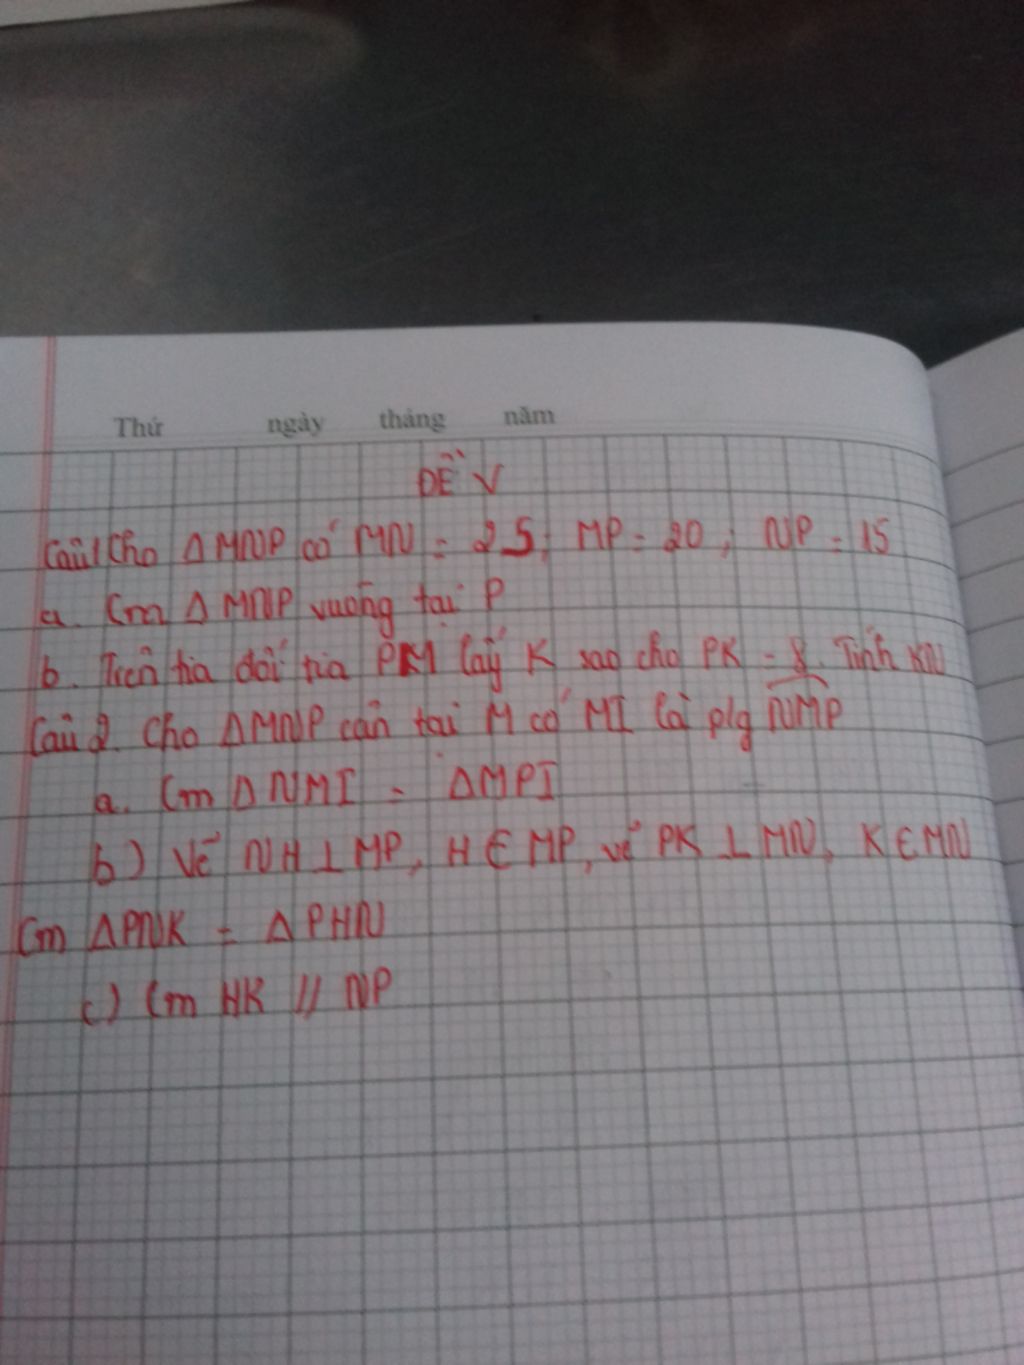 Thứ ngày tháng năm
ĐỀ V
Câu1 Cho ΔMNP có MN = 25; MP = 20; NP = 15
a. Cm ΔMNP vuông tại P
b. Trên tia đối tia PM lấy K sao cho PK = 8. Tính KN
Câu 2. Cho ΔMNP cân tại M có MI là p/g NMP
a. Cm ΔNMI = ΔMPI
b) Vẽ NH⊥MP, H∈MP, vẽ PK⊥MN, K∈MN
Cm ΔPNK = ΔPHN
c) Cm HK // NP